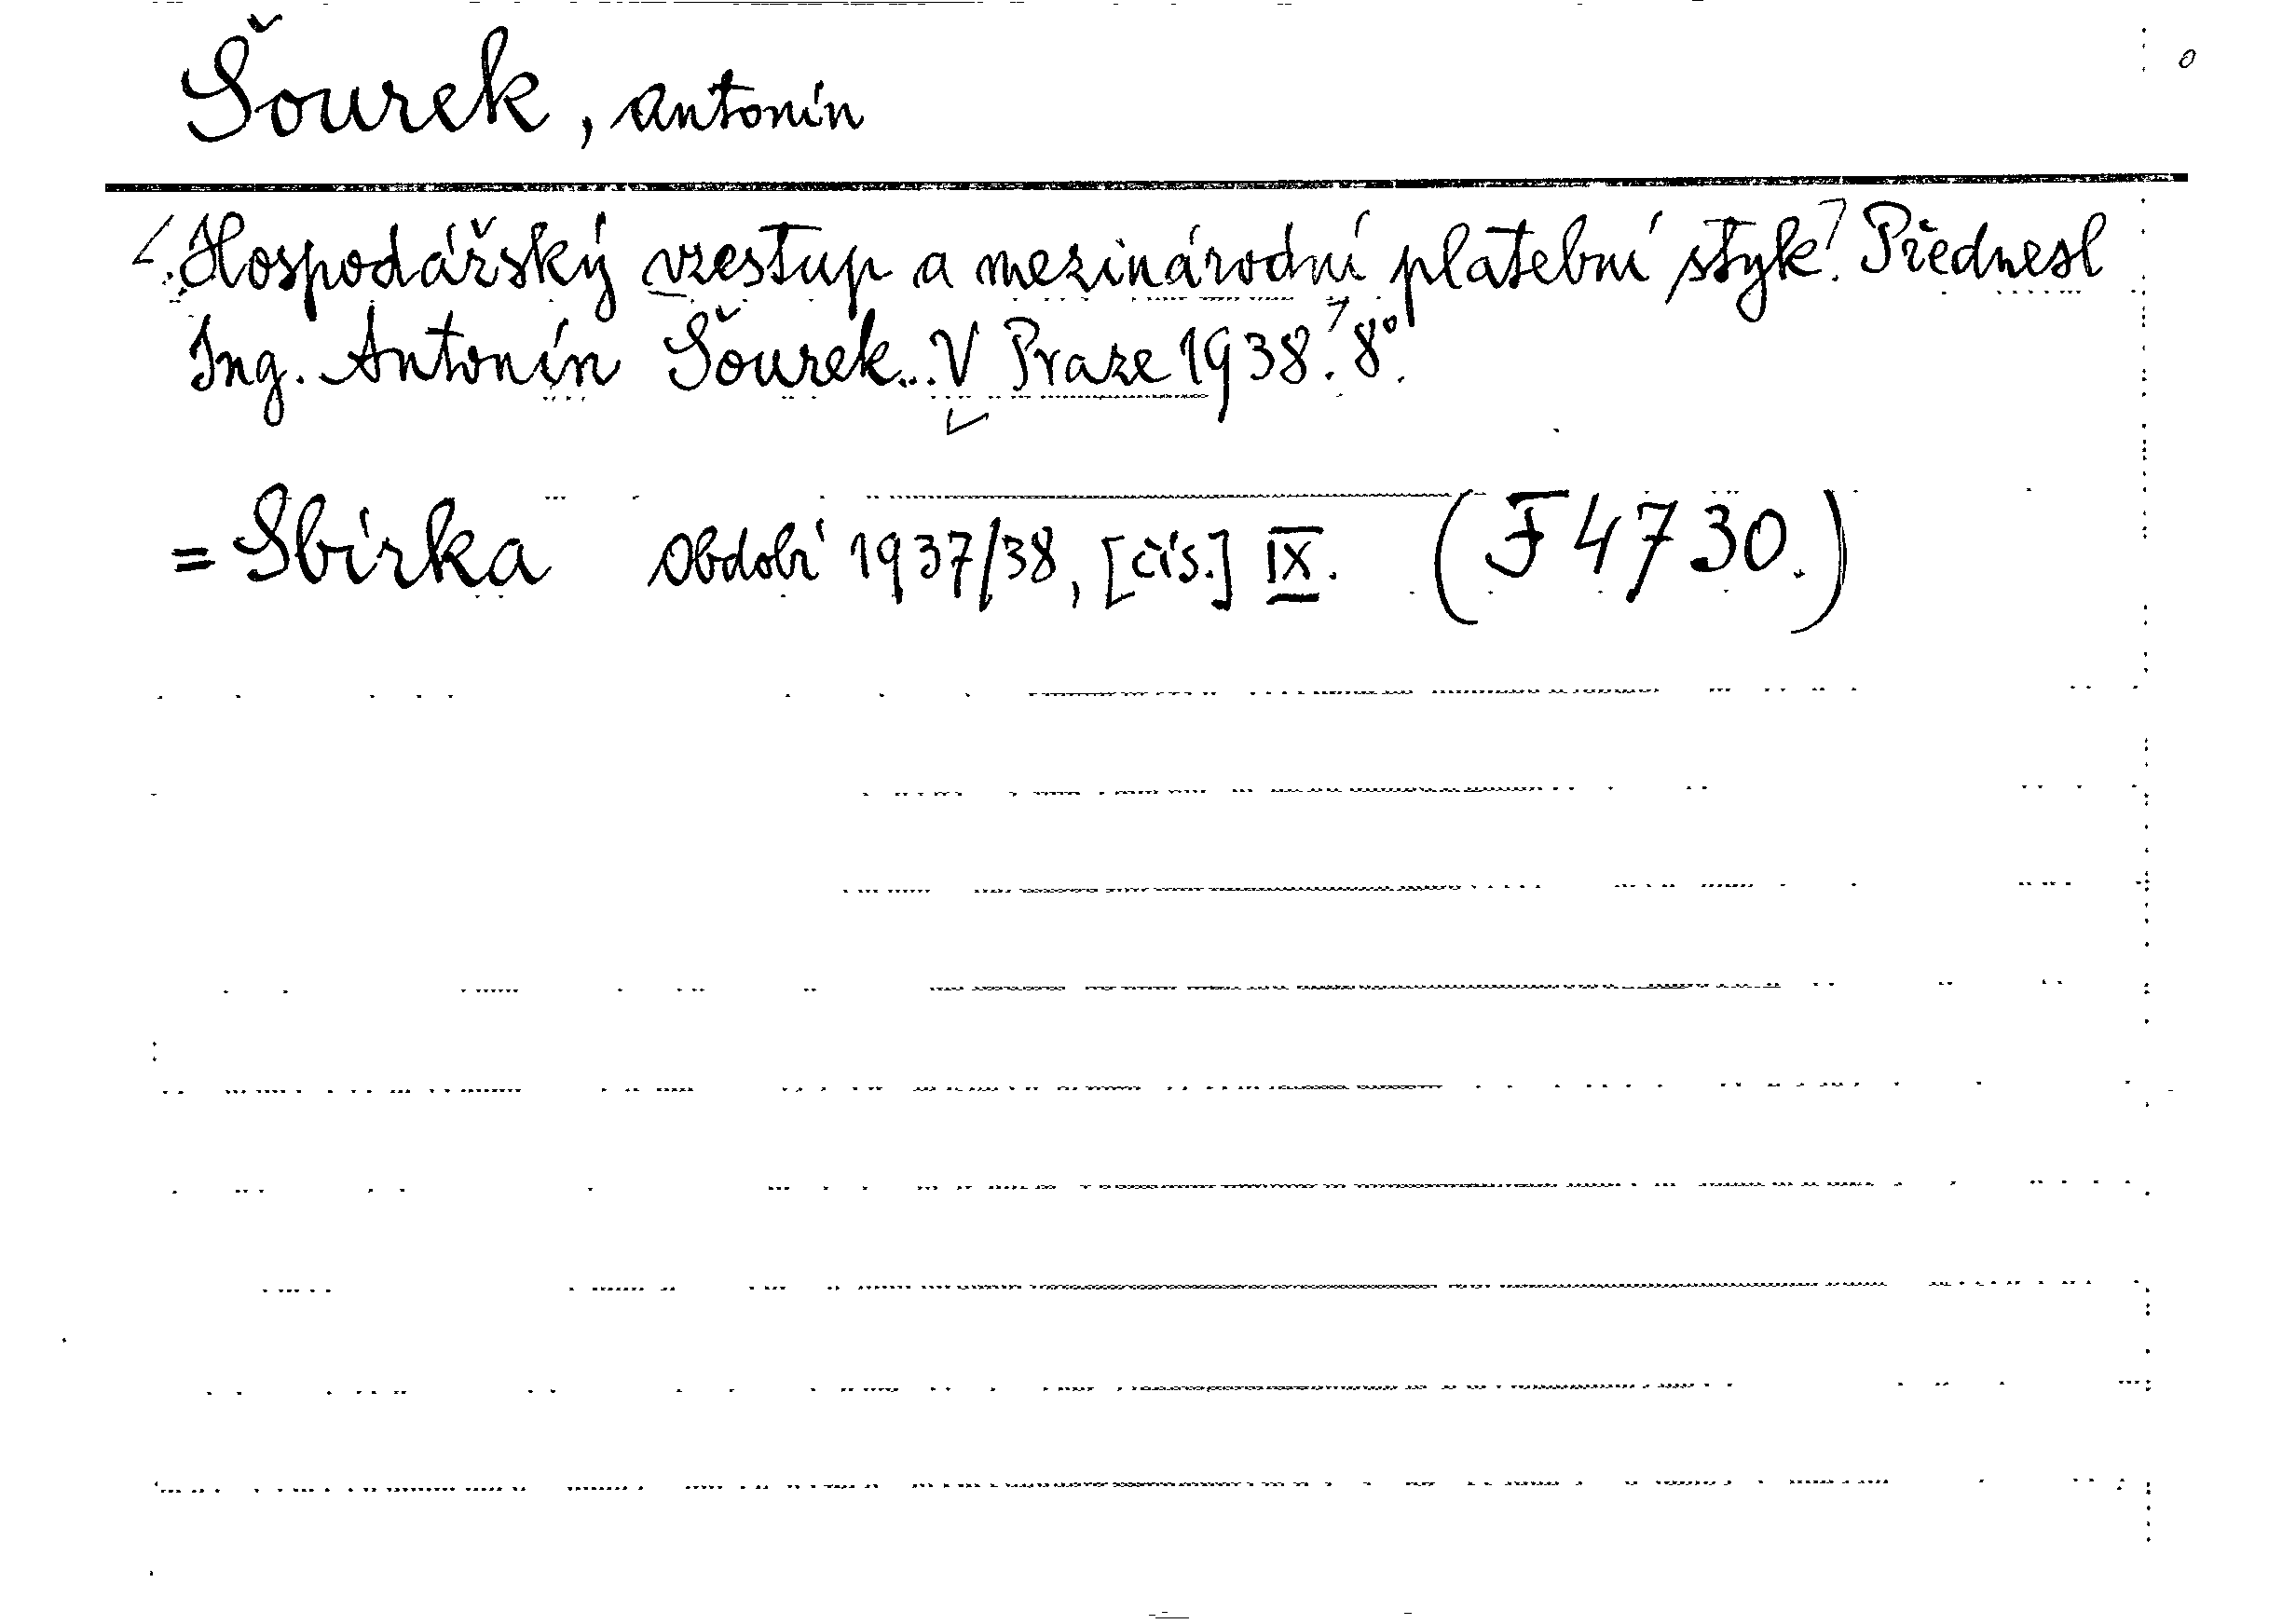 Šourek, Antonín
Hospodářský vzestup a mezinárodní platební styk. Přednesl
Ing. Antonín Šourek... V Praze 1938. 8°.
= Sbírka Období 1937/38, [čís.] IX. (F 4730.)